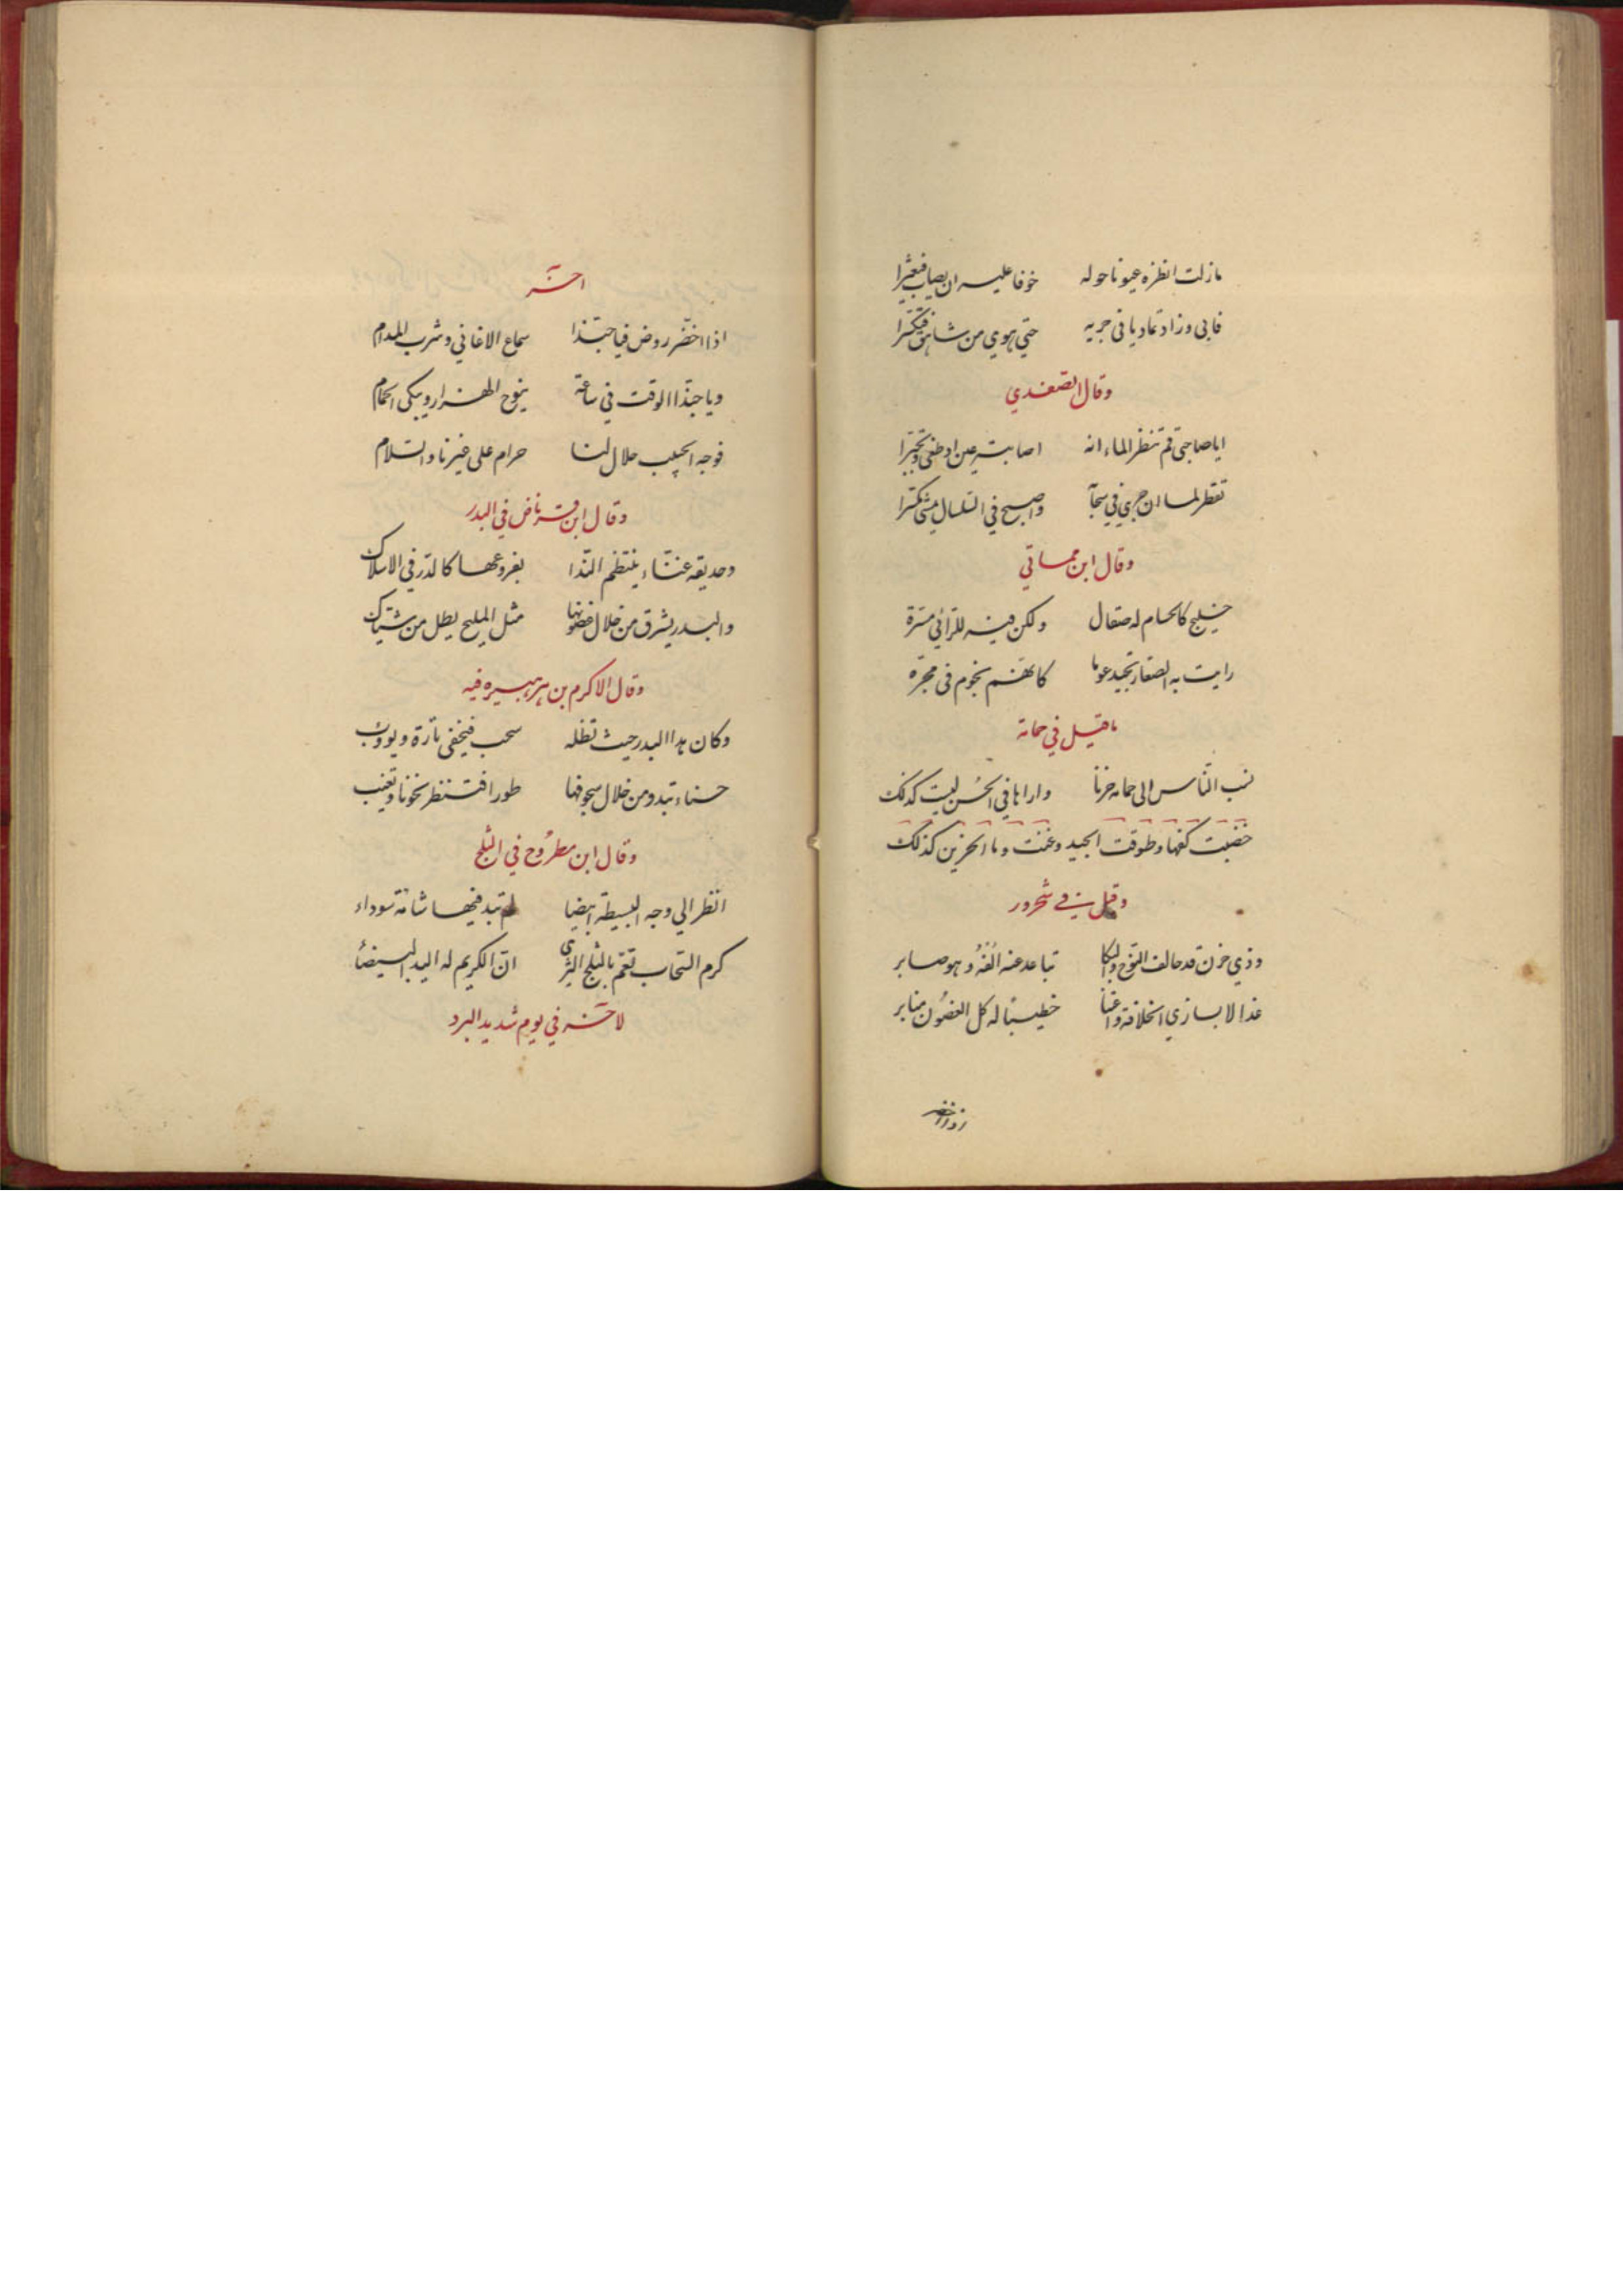 مازلت انظره عيونا حوله خوفا عليه ان يصاب فيعثرا
فابى وزاد تماديا فى جريه حتي هوي من شاهق فتكسرا
وقال الصفدي
اياصاحبي قم تنظر الماء انه اصابته عين اذ طغى وتجبرا
تقطر لما ان جري في سجآ واصبح في السلسال يمشى مكسرا
وقال ابن مماتي
خليج كالحسام له صقال ولكن فيه للرائي مسرة
رايت به الصغار تجيد عوما كانهم نجوم فى مجره
ماقيل في حمامة
نسب الناس الى حمامه حزنا واراها في الحسن ليست كذلك
خضبت كفها وطوقت الجيد وغنت وما الحزين كذلك
وقيل في شحرور
وذي حزن قد حالف النوح والبكا تباعد عنه الفه وهو صابر
غدا لابسا زي الخلافة واغتدا خطيبا له كل الغصون منابر
اخر
اذا اخضر روض فيا حبذا سماع الاغاني وشرب المدام
ويا حبذا الوقت في ساعة ينوح الهزار ويبكى الحمام
فوجه الحبيب حلال لنا حرام على غيرنا والسلام
وقال ابن قرناض في البدر
وحديقه غناء ينتظم الندا بفروعها كالدر في الاسلاك
والبدر يشرق من خلال غصونها مثل المليح يطل من شباك
وقال الاكرم بن هبيره فيه
وكان هذا البدر حيث تظله سحب فيخفى تارة ويووب
حسناء تبدو من خلال سجوفها طورا فتنظر نحونا وتغيب
وقال ابن مطروح في الثلج
انظر الي وجه البسيطة ابيضا لم تبد فيها شامة سوداء
كرم السحاب تعم بالثلج الثرى ان الكريم له اليد البيضاء
لاخر في يوم شديد البرد